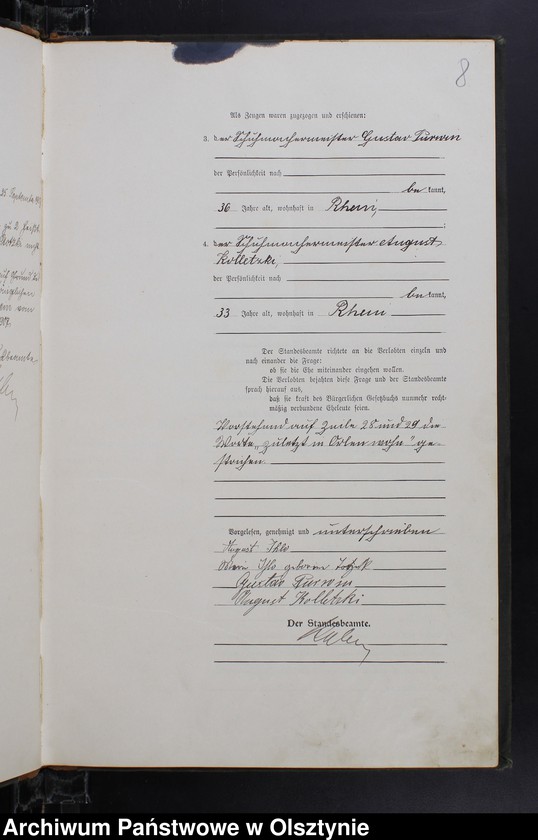 8
Als Zeugen waren zugezogen und erschienen:
3. der Schuhmachermeister Gustav Turwin
der Persönlichkeit nach
bekannt,
36 Jahre alt, wohnhaft in Rhein,
4. der Schuhmachermeister August
Kolletzki,
der Persönlichkeit nach
bekannt,
33 Jahre alt, wohnhaft in Rhein
Der Standesbeamte richtete an die Verlobten einzeln und
nach einander die Frage:
ob sie die Ehe miteinander eingehen wollen.
Die Verlobten bejahten diese Frage und der Standesbeamte
sprach hierauf aus,
daß sie kraft des Bürgerlichen Gesetzbuchs nunmehr recht-
mäßig verbundene Eheleute seien.
Vorstehend auf Zeile 28 und 29 die
Worte „zuletzt in Orlen wohn" ge-
strichen.
Vorgelesen, genehmigt und unterschrieben
August Ihlo
Ihlo geborene
Gustav Turwin
August Kolletzki
Der Standesbeamte.
Archiwum Państwowe w Olsztynie